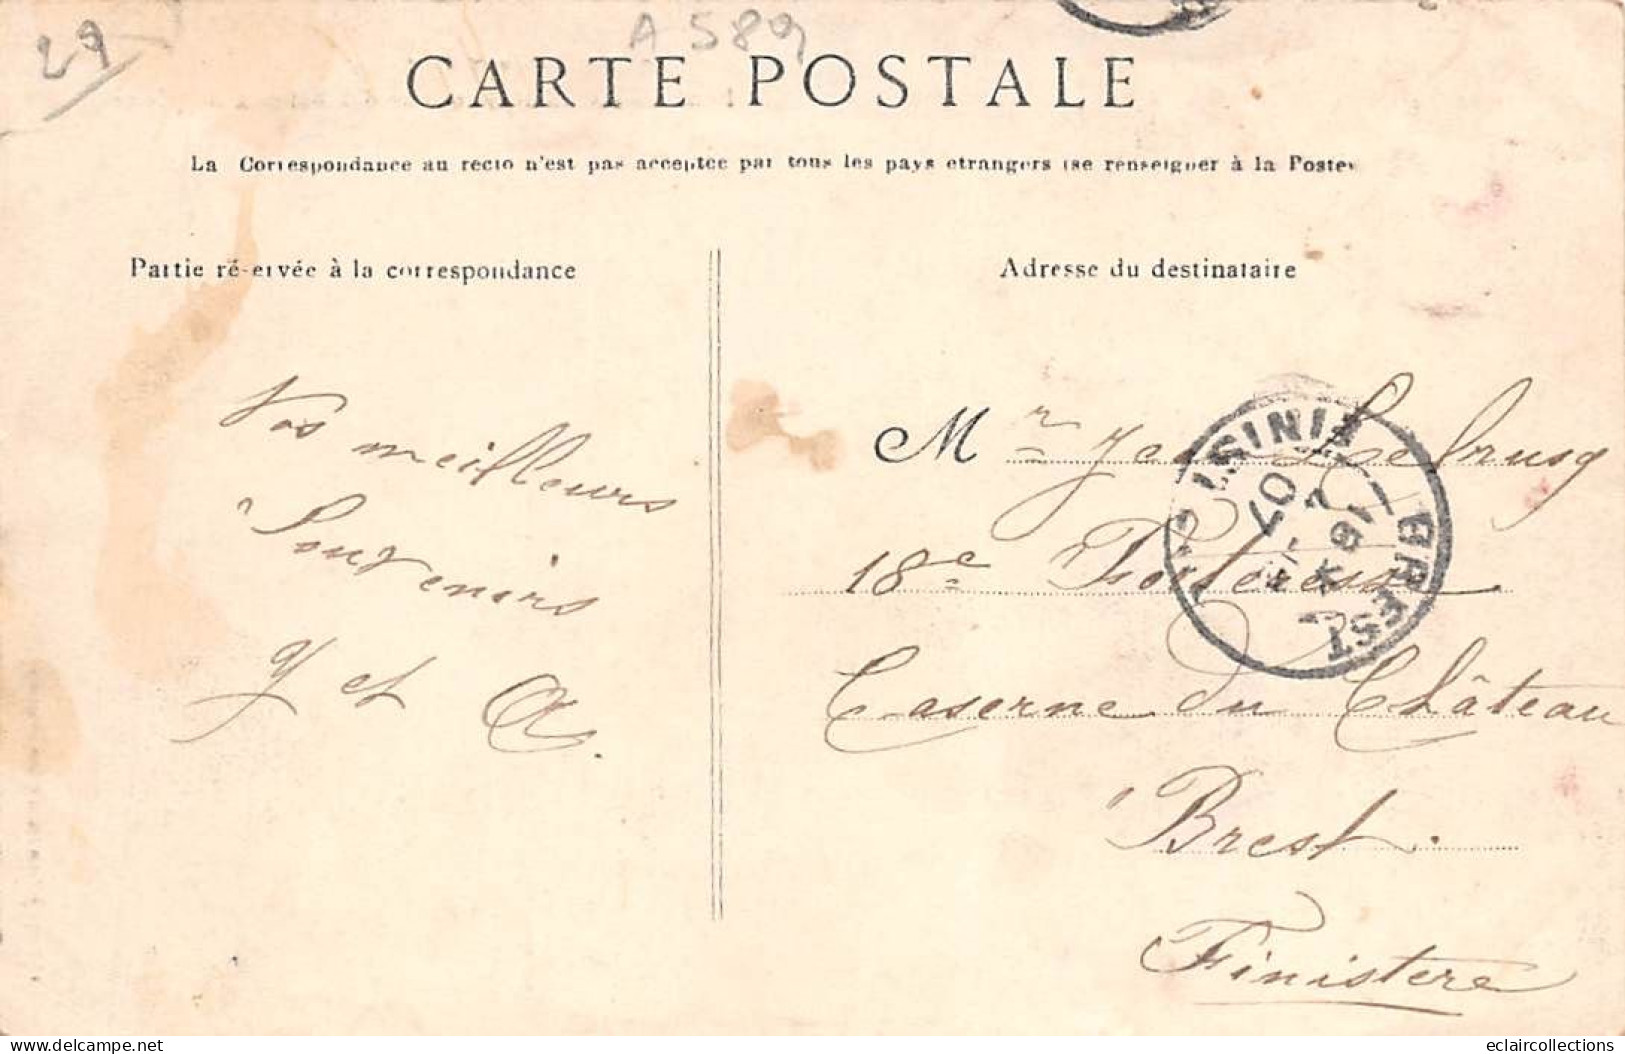 29
A 589
CARTE POSTALE
La Correspondance au recto n'est pas acceptee par tous les pays etrangers (se renseigner à la Poste)
Partie réservée à la correspondance
Adresse du destinataire
Vos meilleurs
Souvenirs
Y et A.
Mr Jean Lebrusq
18e Forteresse
Caserne du Château
Brest.
Finistere
BREST FINIST
07
delcampe.net
eclaircollections